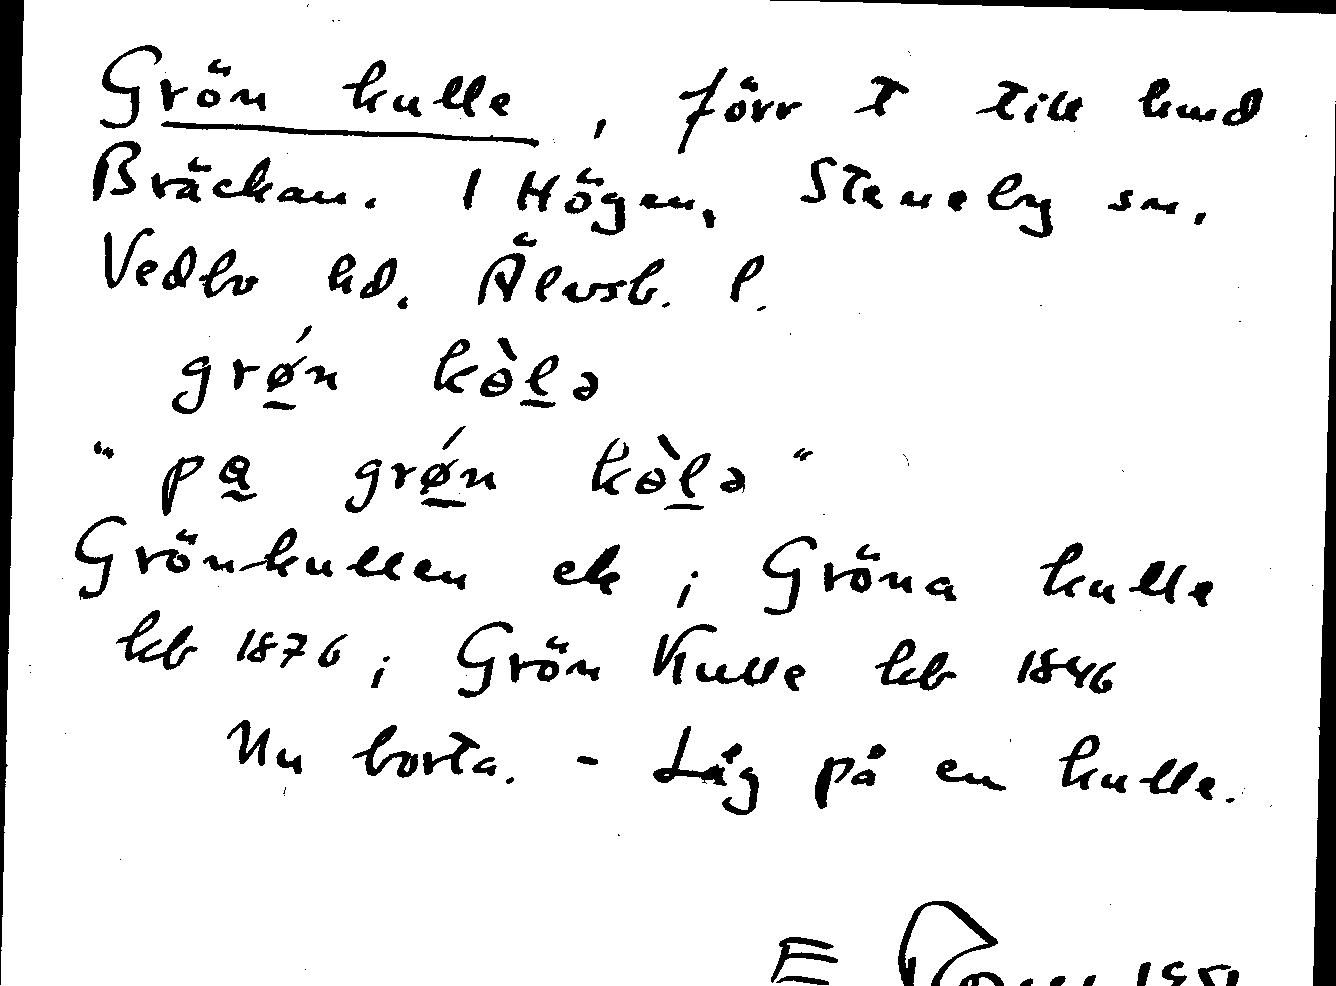 Grön kulle, förr t till hmd
Bräckan. 1 Högen, Steneby sn.
Vedbo hd. Älvsb. l.
grǿ̲n kɵ̀l̲ə
"pa̲ grǿ̲n kɵ̀l̲ə"
Grönkullen ek; Gröna kulle
kb 1876; Grön Kulle kb 1846
Nu borta. - Låg på en kulle.
E